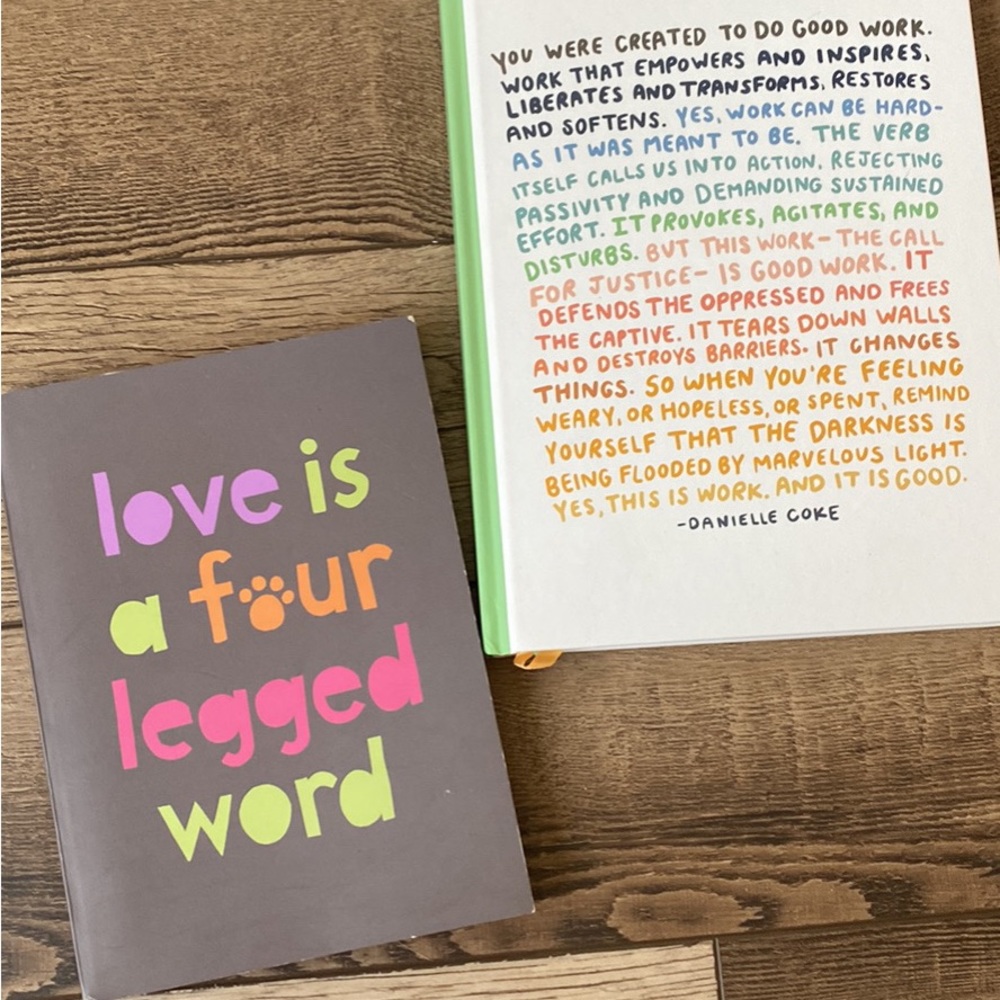 YOU WERE CREATED TO DO GOOD WORK.
WORK THAT EMPOWERS AND INSPIRES,
LIBERATES AND TRANSFORMS, RESTORES
AND SOFTENS. YES, WORK CAN BE HARD-
AS IT WAS MEANT TO BE. THE VERB
ITSELF CALLS US INTO ACTION, REJECTING
PASSIVITY AND DEMANDING SUSTAINED
EFFORT. IT PROVOKES, AGITATES, AND
DISTURBS. BUT THIS WORK- THE CALL
FOR JUSTICE- IS GOOD WORK. IT
DEFENDS THE OPPRESSED AND FREES
THE CAPTIVE. IT TEARS DOWN WALLS
AND DESTROYS BARRIERS. IT CHANGES
THINGS. SO WHEN YOU'RE FEELING
WEARY, OR HOPELESS, OR SPENT, REMIND
YOURSELF THAT THE DARKNESS IS
BEING FLOODED BY MARVELOUS LIGHT.
YES, THIS IS WORK. AND IT IS GOOD.
-DANIELLE COKE
love is
a four
legged
word